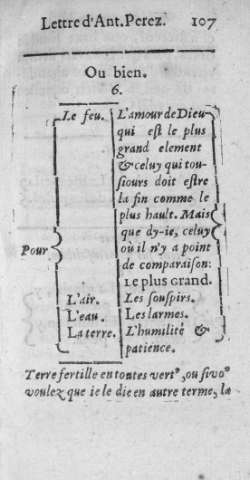 Lettre d'Ant. Perez. 107
Ou bien.
6.
Le feu. L'amour de Dieu
qui est le plus
grand element
& celuy qui tou-
siours doit estre
la fin comme le
plus hault. Mais
que dy-ie, celuy
Pour où il n'y a point
de comparaison:
Le plus grand.
L'air. Les souspirs.
L'eau. Les larmes.
La terre. L'humilité &
patience.
Terre fertille en toutes vertˀ, ou si voˀ
voulez que ie le die en autre terme, la